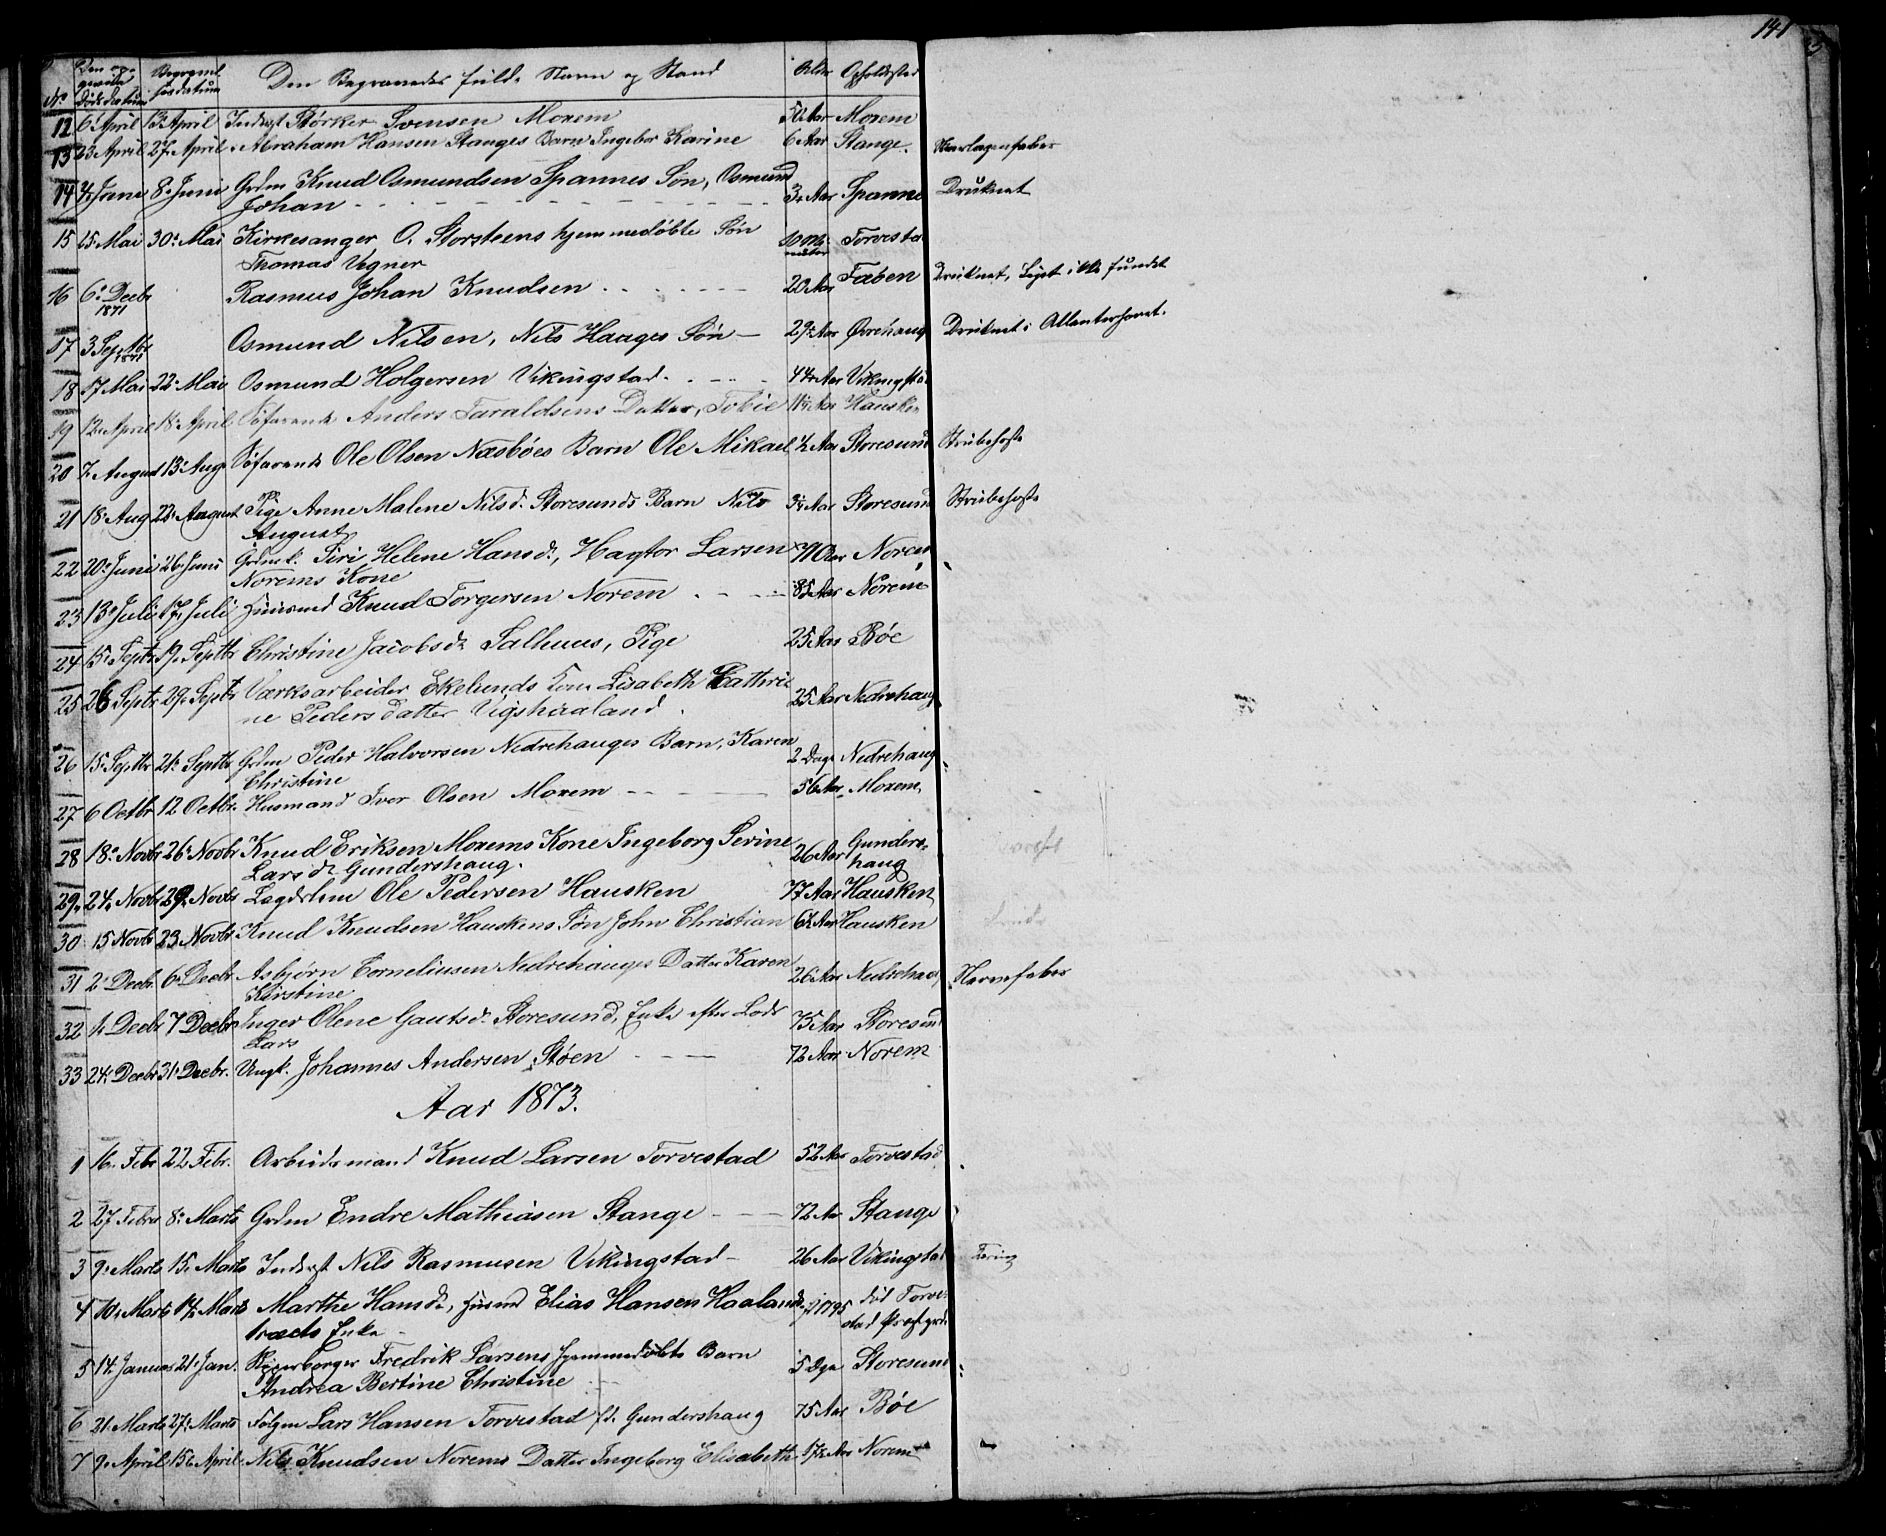 141
No Den opgivne Dödsdatum Begravelsesdatum Den Begravedes fulde Navn og Stand Alder Opholdssted
12 6 April 13 April Inderst Störker Svensen Moxem 50 Aar Moxem
13 23 April 27 April Abraham Hansen Stanges Barn Ingebor Karine 6 Aar Stange. Skarlagensfeber
14 4 Juni 8 Juni Grdm Knud Osmundsen Spannes Sön, Osmund 3 Aar Spanne Druknet
Johan
15 25 Mai 30 Mai Kirkesanger O. Storsteens hjemmedöbte Sön Torvestad
Thomas Vegner
16 6 Decbr Rasmus Johan Knudsen 20 Aar Fæøen Druknet, Liget ikke fundet
1871
17 3 Septbr Osmund Nilsen, Nils Haages Sön 29 Aar Övrehaug Druknet i Atlanterhavet.
1871
18 17 Mai 22 Mai Osmund Holgersen Vikingstad 44 Aar Vikingstad
19 12 April 18 April Söfarende Anders Taraldsens Datter, Tobie 11 Aar Hausken
20 7 August 13 Aug Söfarende Ole Olsen Næsböes Barn Ole Mikael ½ Aar Storesund Strubehoste
21 18 Aug 22 August Pige Anne Malene Nilsd. Storesunds Barn Nils 3 Aar Storesund Strubehoste
August
22 20 Juni 26 Juni Siri Helene Hansd., Hagtor Larsen 71 Aar Norem
Norems Kone
23 13 Juli 17 Juli Huusmd Knud Torgersen Norem 85 Aar Norem
24 15 Septbr 19 Septbr Christine Jacobsd. Salhuus, Pige 25 Aar Böe
25 26 Septr 29 Septr Værksarbeider Ekelunds Kone Lisabeth Cathri- 25 Aar Nedrehaug
ne Pedersdatter Vigshaaland.
26 15 Septbr 21 Septbr Grdm Peder Halvorsen Nedrehauges Barn, Karen 2 Dage Nedrehaug
Christine
27 6 Octbr 12 Octbr. Husmand Iver Olsen Moxem 56 Aar Moxem
28 18 Novbr 26 Novbr Knud Eriksen Moxems Kone Ingeborg Serine 26 Aar Gunders-
Larsd. Gundershaug. haug
29 24 Novbr 29 Novbr Lægdslem Ole Pedersen Hausken 77 Aar Hausken
30 15 Novbr 23 Novbr Knud Knudsen Hauskens Sön John Christian Hausken
31 2 Decbr. 6 Decbr Asbjørn Corneliusen Nedrehauges Datter Karen 26 Aar Nedrehaug Nervefeber
Kirstine
32 1 Decbr 7 Decbr Inger Olene Gautsd. Storesund, Enke efter Lods 75 Aar Storesund
Lars
33 24 Decbr 31 Decbr. Ungk. Johannes Andersen Støen 72 Aar Norem
Aar 1873.
1 16 Febr 22 Febr. Arbeidsmand Knud Larsen Torvestad 52 Aar Torvestad
2 27 Febr 8 Marts Grdm Endre Mathiasen Stange 72 Aar Stange
3 9 Marts 15 Marts Inderst Nils Rasmusen Vikingstad 26 Aar Vikingstad Tæring
4 10 Marts 14 Marts Marthe Hansd., Husmd Elias Hansen Haaland- 1795 död Torve-
træets Enke stad Præstgrd.
5 14 Januar 21 Jan. Fredrik Larsens hjemmedöbte Barn 5 Dge Storesund
Andrea Bertine Christine
6 21 Marts 27 Marts Lars Hansen Torvestad fd. Gundershaug 75 Aar Böe
7 9 April 15 April Nils Knudsen Norems Datter Ingeborg Elisabeth 17 Aar Norem